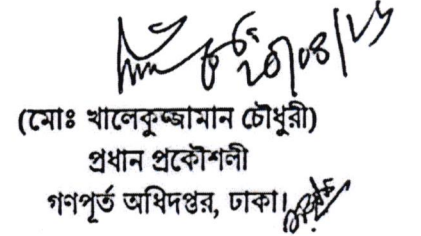 ২০/০৪/২৬
(মোঃ খালেকুজ্জামান চৌধুরী)
প্রধান প্রকৌশলী
গণপূর্ত অধিদপ্তর, ঢাকা।